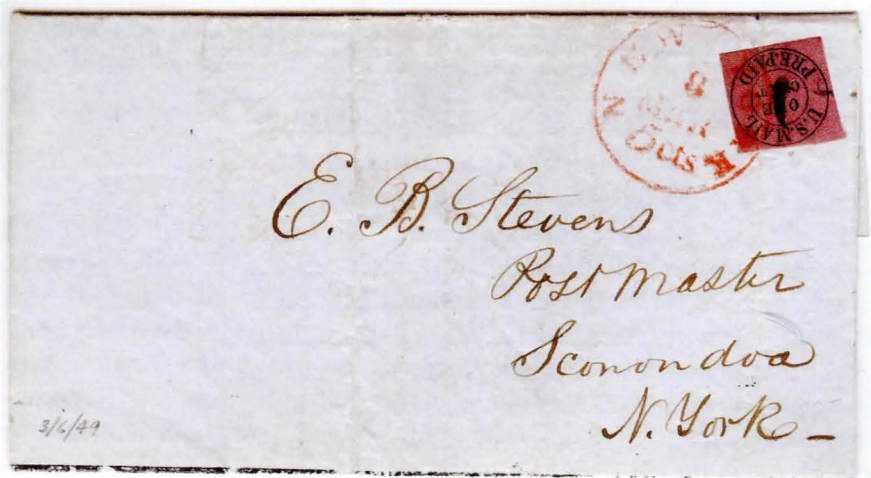 8
MAR
U.S. MAIL
PRE-PAID
ONE CENT
E. B. Stevens
Post Master
Sconondoa
N. York
3/6/49